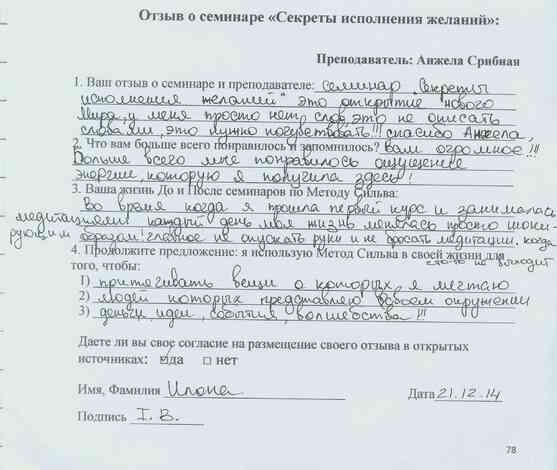 Отзыв о семинаре «Секреты исполнения желаний»:
Преподаватель: Анжела Срибная
1. Ваш отзыв о семинаре и преподавателе: семинар „Секреты
исполнения желаний" это открытие нового
Мира, у меня просто нет слов, это не описать
словами, это нужно почувствовать!!! спасибо Анжела,
2. Что вам больше всего понравилось и запомнилось? вам огромное!!!
Больше всего мне понравилось ощущение
энергии, которую я получила здесь!
3. Ваша жизнь До и После семинаров по Методу Сильва:
Во время когда я прошла первый курс и занималась
медитациями каждый день моя жизнь менялась просто шоки-
рующим образом! главное не опускать руки и не бросать медитации, когда
4. Продолжите предложение: я использую Метод Сильва в своей жизни для
что-то не выходит
того, чтобы:
1) притягивать вещи о которых я мечтаю
2) людей которых представляю в своем окружении
3) деньги, идеи, события, волшебства!!!
Даете ли вы свое согласие на размещение своего отзыва в открытых
источниках: ☑да ☐ нет
Имя, Фамилия Илона Дата 21.12.14
Подпись I. В.
78